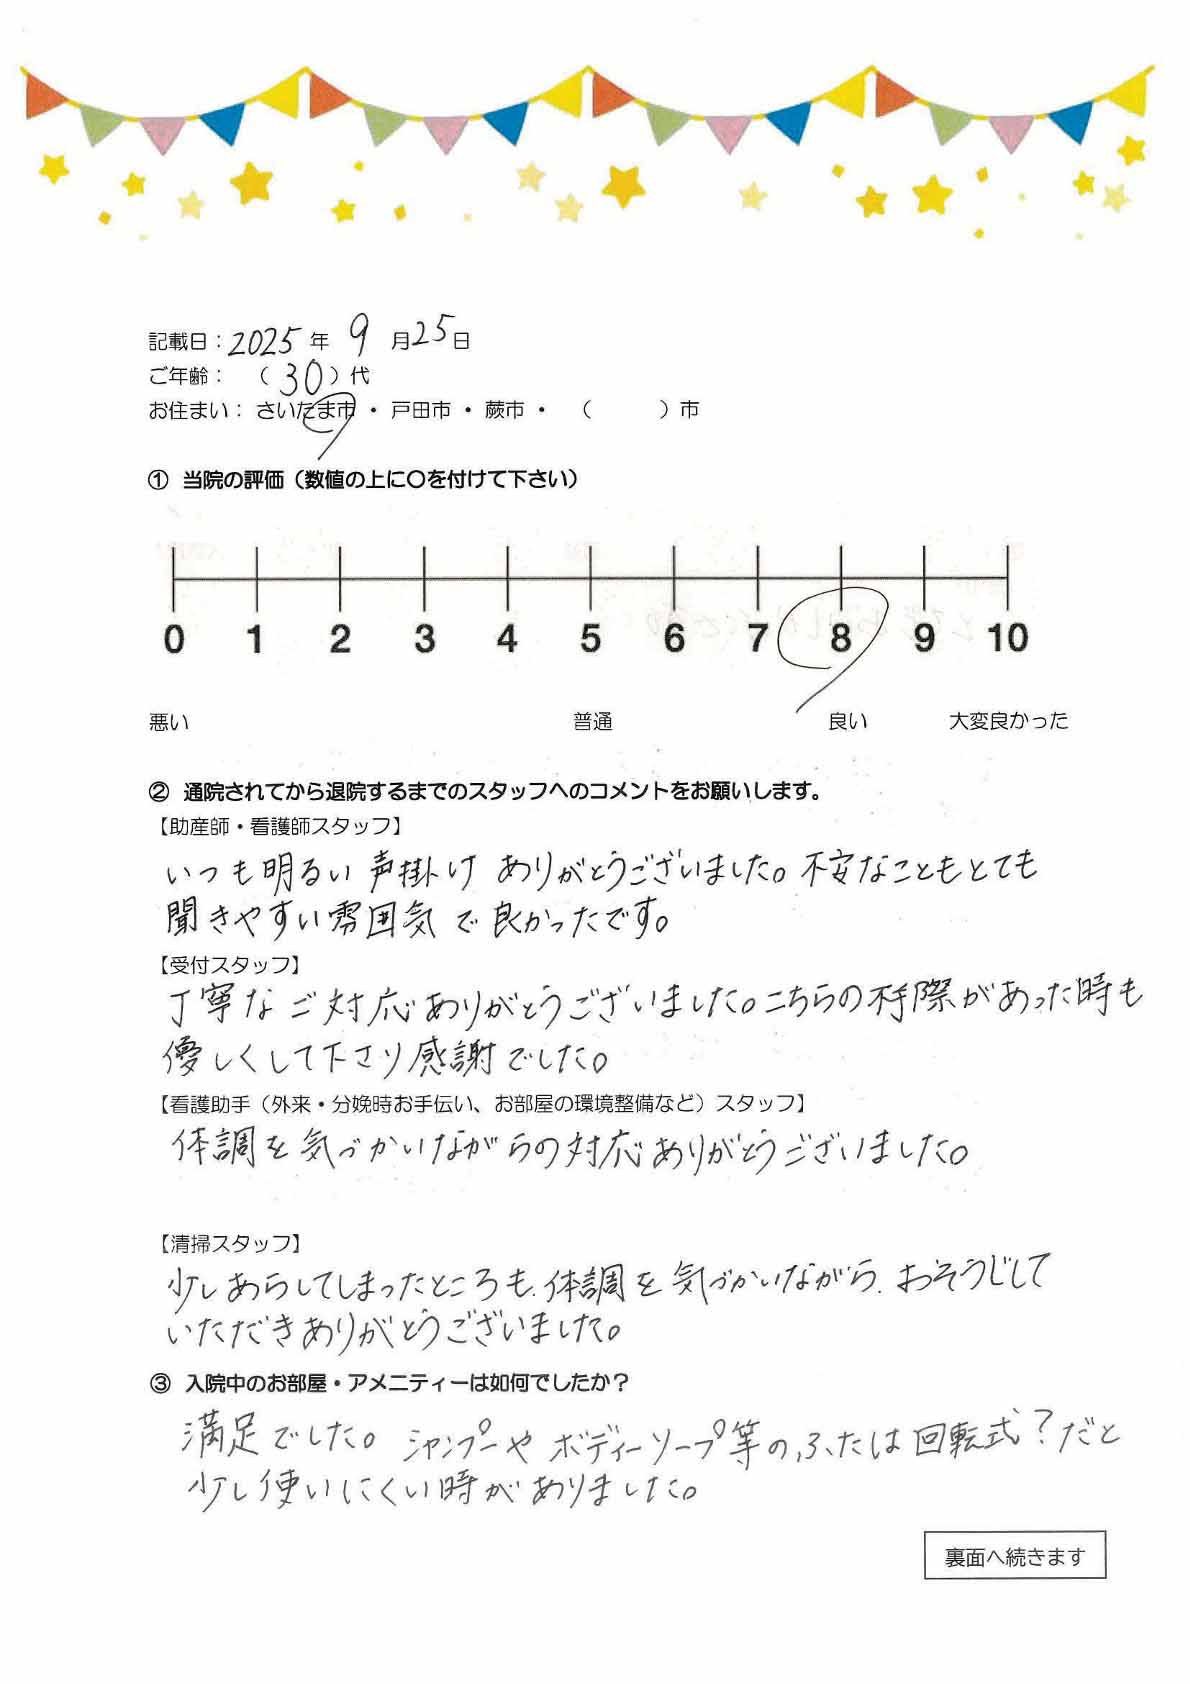 記載日：2025年 9月25日
ご年齢： （30）代
お住まい： さいたま市 ・ 戸田市 ・ 蕨市 ・ （　　　）市
① 当院の評価（数値の上に〇を付けて下さい）
0 1 2 3 4 5 6 7 8 9 10
悪い 普通 良い 大変良かった
② 通院されてから退院するまでのスタッフへのコメントをお願いします。
【助産師・看護師スタッフ】
いつも明るい声掛け ありがとうございました。不安なこともとても
聞きやすい雰囲気で良かったです。
【受付スタッフ】
丁寧なご対応ありがとうございました。こちらの不手際があった時も
優しくして下さり感謝でした。
【看護助手（外来・分娩時お手伝い、お部屋の環境整備など）スタッフ】
体調を気づかいながらの対応ありがとうございました。
【清掃スタッフ】
少しあらしてしまったところも、体調を気づかいながら、おそうじして
いただきありがとうございました。
③ 入院中のお部屋・アメニティーは如何でしたか？
満足でした。シャンプーやボディーソープ等のふたは回転式？だと
少し使いにくい時がありました。
裏面へ続きます